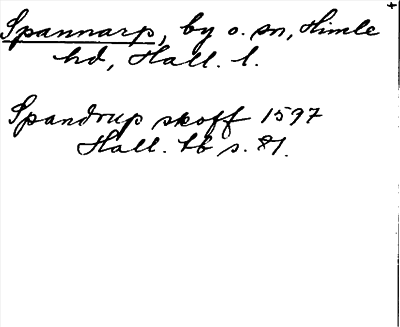 Spannarp, by o. sn, Himle
hd, Hall. l.
Spandrup skoff 1597
Hall. tb s. 81.